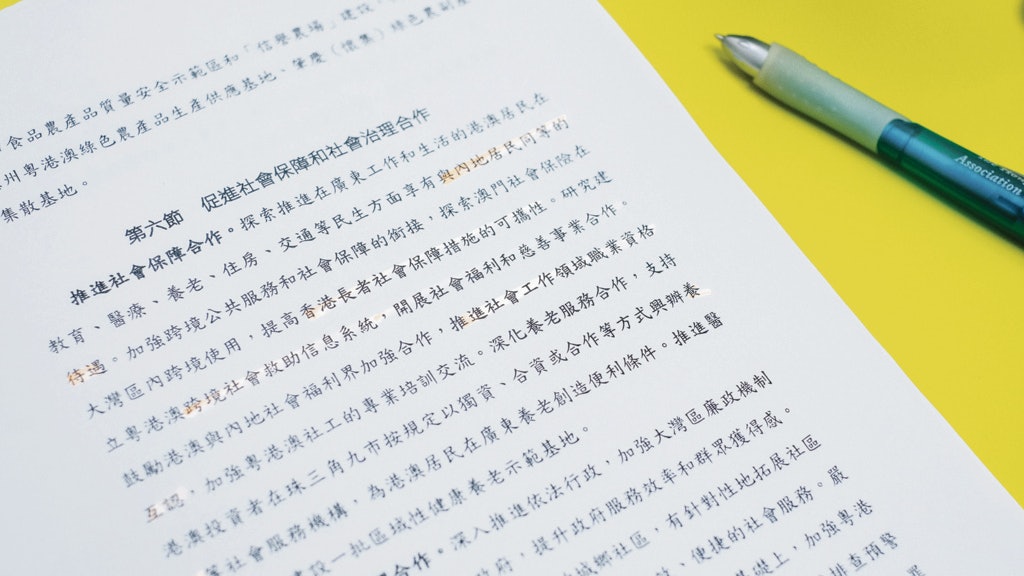 食品農產品質量安全示範區和「信譽農場」建設，
州粵港澳綠色農產品生產供應基地、肇慶（懷集）綠色農副產
集散基地。
第六節 促進社會保障和社會治理合作
推進社會保障合作。探索推進在廣東工作和生活的港澳居民在
教育、醫療、養老、住房、交通等民生方面享有與內地居民同等的
待遇。加強跨境公共服務和社會保障的銜接，探索澳門社會保險在
大灣區內跨境使用，提高香港長者社會保障措施的可攜性。研究建
立粵港澳跨境社會救助信息系統，開展社會福利和慈善事業合作。
鼓勵港澳與內地社會福利界加強合作，推進社會工作領域職業資格
互認，加強粵港澳社工的專業培訓交流。深化養老服務合作，支持
港澳投資者在珠三角九市按規定以獨資、合資或合作等方式興辦養
等社會服務機構，為港澳居民在廣東養老創造便利條件。推進醫
建設一批區域性健康養老示範基地。
合作。深入推進依法行政，加強大灣區廉政機制
政府，提升政府服務效率和群眾獲得感。
城鄉社區，有針對性地拓展社區
、便捷的社會服務。嚴
基礎上，加強粵港
排查預警
Association